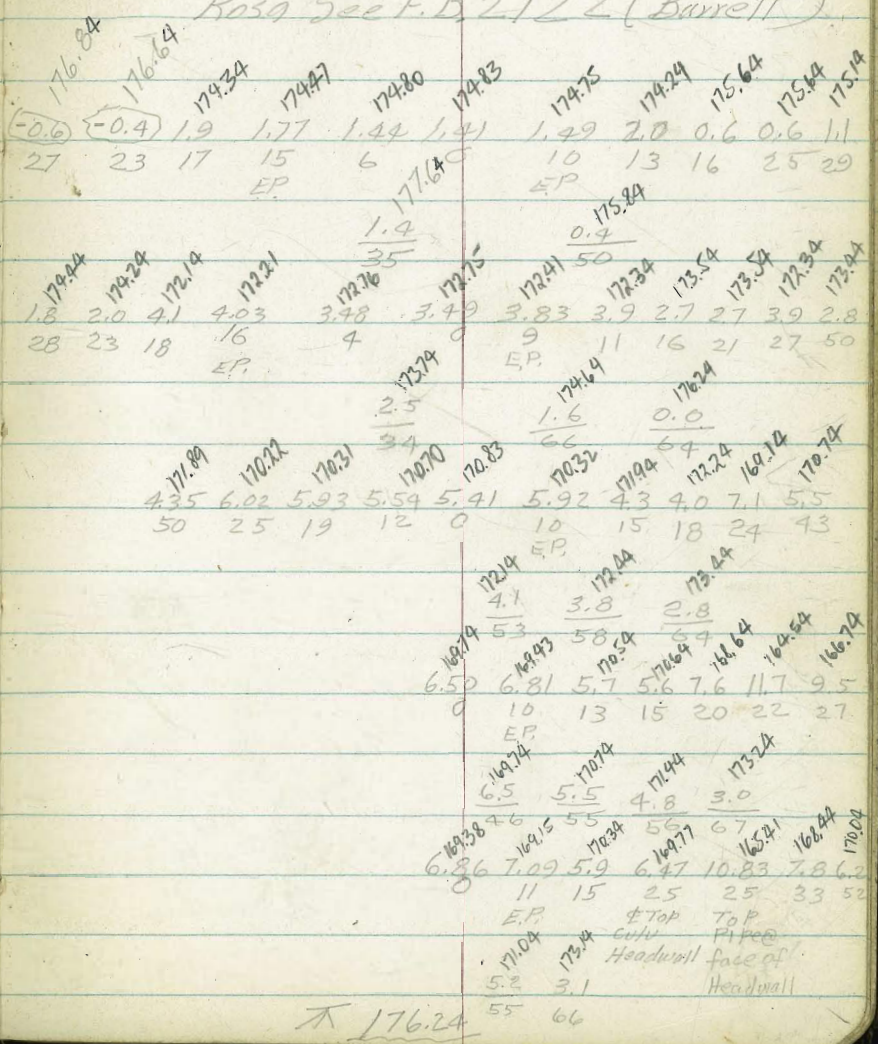 Rosa See F.B. 2122 (Barrell)
176.84 176.64 174.34 174.47 174.80 174.83 174.75 174.24 175.64 175.64 175.14
-0.6 -0.4 1.9 1.77 1.44 1.41 1.49 2.0 0.6 0.6 1.1
27 23 17 15 6 0 10 13 16 25 29
E.P. E.P.
177.64 175.84
1.4 0.4
35 50
174.44 174.24 172.14 172.21 172.76 172.75 172.41 172.34 173.54 173.54 172.34 173.44
1.8 2.0 4.1 4.03 3.48 3.49 3.83 3.9 2.7 2.7 3.9 2.8
28 23 18 16 4 0 9 11 16 21 27 50
E.P. E.P.
173.74 174.64 176.24
2.5 1.6 0.0
34 66 64
171.89 170.22 170.31 170.70 170.83 170.32 171.94 172.24 169.14 170.74
4.35 6.02 5.93 5.54 5.41 5.92 4.3 4.0 7.1 5.5
50 25 19 12 0 10 15 18 24 43
E.P.
172.14 172.44 173.44
4.1 3.8 2.8
53 58 64
169.74 169.43 170.54 170.64 168.64 164.54 166.74
6.50 6.81 5.7 5.6 7.6 11.7 9.5
0 10 13 15 20 22 27
E.P.
169.74 170.74 171.44 173.24
6.5 5.5 4.8 3.0
46 55 56 67
169.38 169.15 170.34 169.77 165.41 168.44 170.04
6.86 7.09 5.9 6.47 10.83 7.8 6.2
0 11 15 25 25 33 52
E.P. ¢ Top Top
Culv Pipe@
171.04 173.14 Headwall face of
5.2 3.1 Headwall
55 66
⊼ 176.24